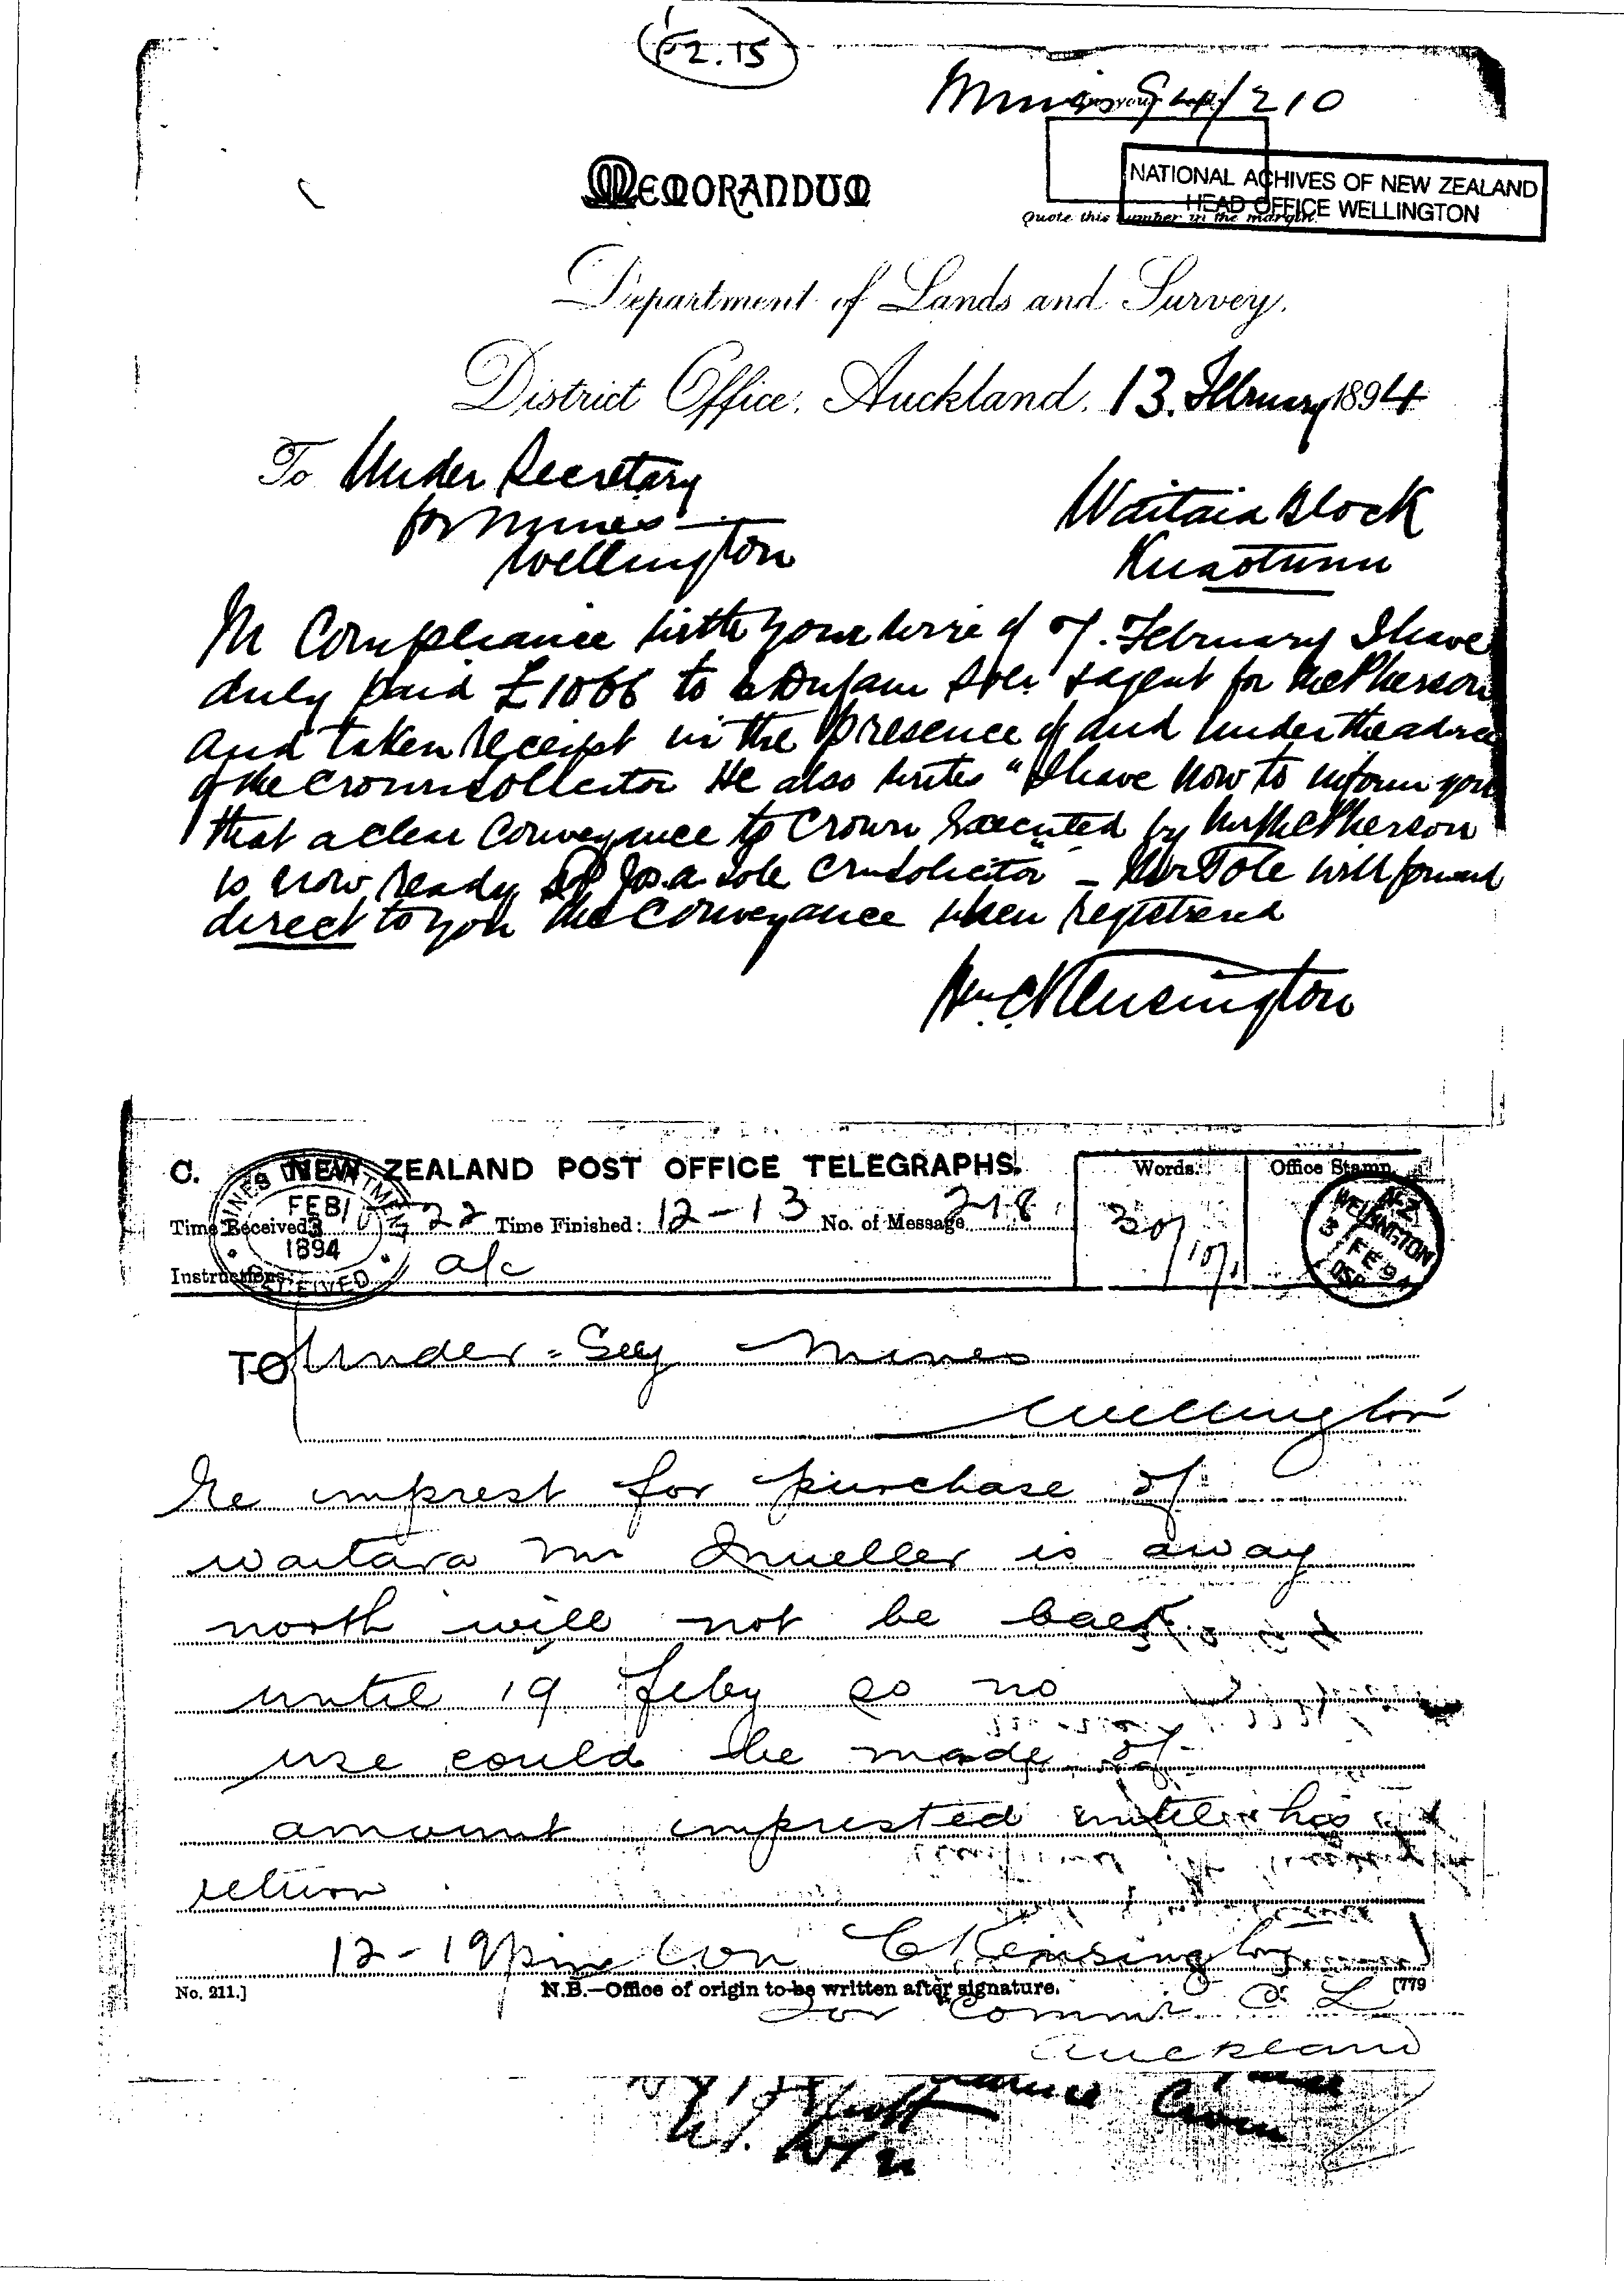 62.15
Mines 94/210
MEMORANDUM
NATIONAL ACHIVES OF NEW ZEALAND
HEAD OFFICE WELLINGTON
Quote this number in the margin.
Department of Lands and Survey,
District Office, Auckland, 13. February 1894
To Under Secretary
for Mines
Wellington
Waitaia Block
Kuaotunu
In Compliance with your wire of 7. February I have
duly paid £1066 to agent for McPherson
and taken receipt in the presence of and under the advice
of the Crown solicitor He also writes "I have now to inform you
that a clear Conveyance to Crown Executed by Mr McPherson
is now ready Jos. a. Tole Crn Solicitor" – Mr Tole will forward
direct to you the Conveyance when registered
Wm C Kensington
C. NEW ZEALAND POST OFFICE TELEGRAPHS.
Words.
Office Stamp.
MINES DEPARTMENT
FEB 13
1894
RECEIVED
Time Received: 22 Time Finished: 12-13 No. of Message 218
30/
WELLINGTON
Instructions: a/c
TO Under-Secy Mines
Wellington
Re imprest for purchase of
waitara Mr Mueller is away
north will not be back
until 19 feby so no
use could be made of
amount imprested until his
return
12-19pm Won C Kensington
No. 211.]
N.B.—Office of origin to be written after signature.
[779
for Commr C L
Auckland